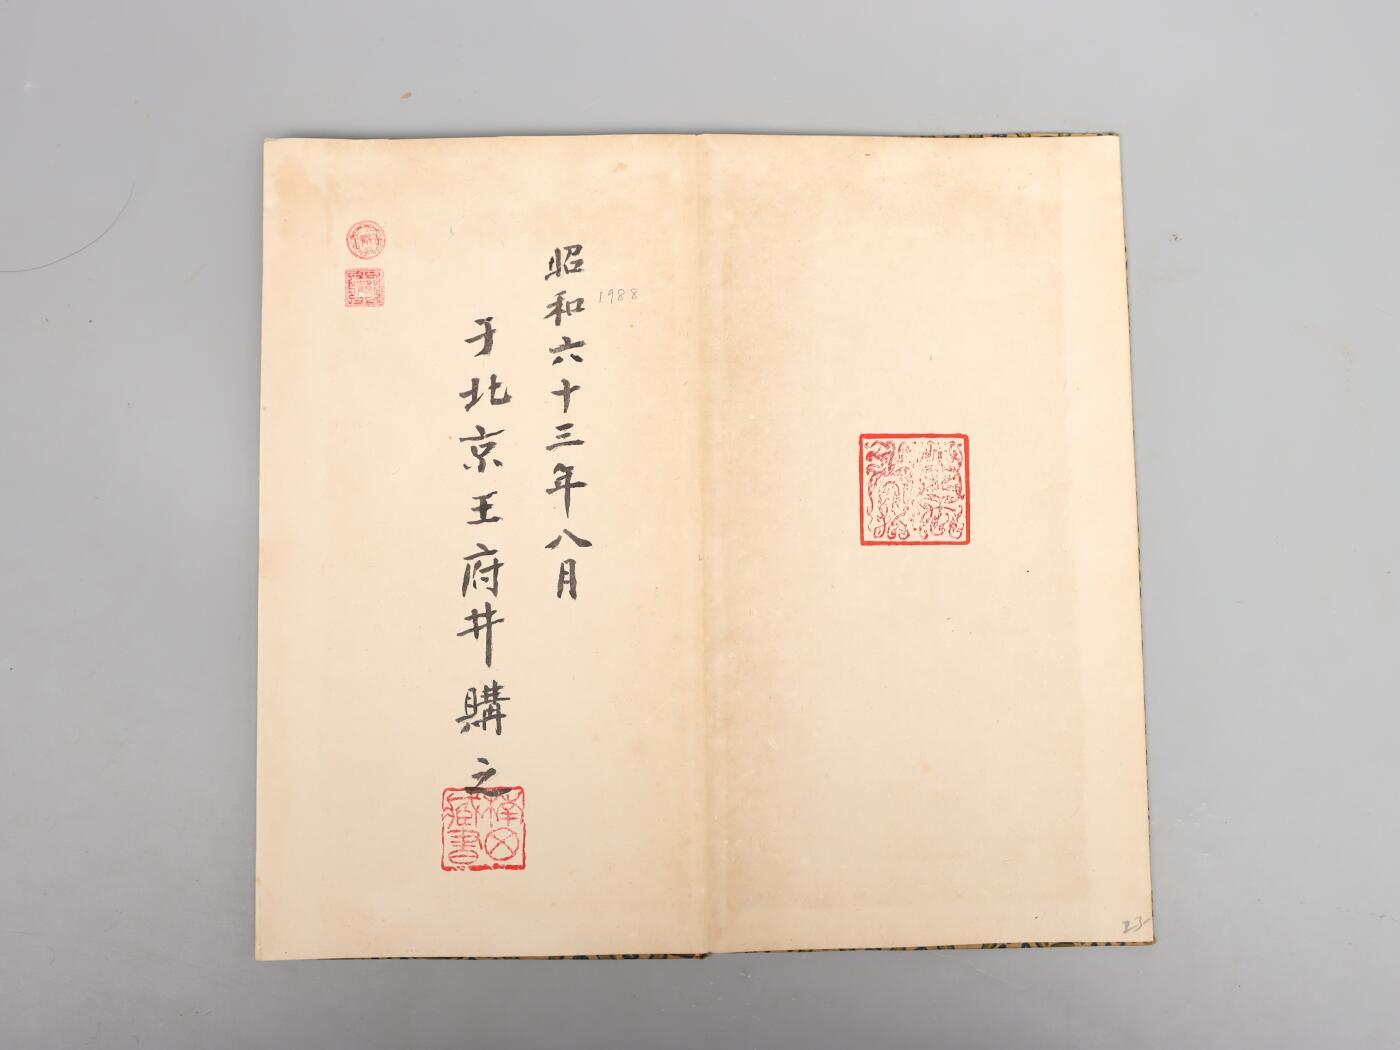 昭和六十三年八月
1988
于北京王府井購之
藏書
23